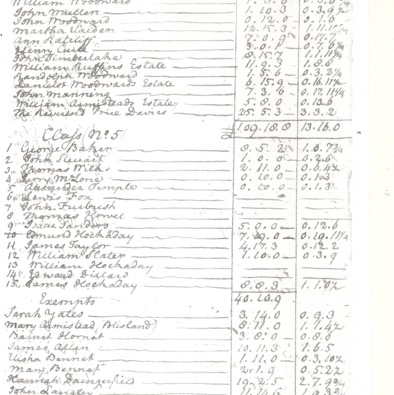 William Woodward
John Meullen 1.10.3 0.3.9
John Woodward 0.12.0 0.1.6
Martha Valden 12.15.3
Ann Ratcliff
Henry Cull
John Timberlake 8.15.7
William Ruffins Estate 11.9.3 1.8.6
Randolph Woodward 1.5.6 0.3.2¼
Lanclot Woodwards Estate 6.15.9 0.16.11½
John Manning 7.3.6 0.17.11¼
William Armsteads Estate 5.8.0 0.13.6
The Reverend Price Davies 25.5.3 3.3.2
109.18.8 13.16.0
Class No. 5
1 George Baker 8.5.2 1.0.7¾
2 John Stewart 1.0.0 0.2.6
3 Thomas Wilks 2.11.0 0.6.4½
4 0.10.0 0.1.3
5 Alexander Temple 0.10.0 0.1.3
6 Lewis Fox
7 John Furbush
8 Thomas Howel
9 Isaac Sanders 5.0.0 0.12.6
10 Edmund Hockaday 7.19.0 0.19.11¼
11 James Taylor 4.17.3 0.12.2
12 William Slater 1.10.0 0.3.9
13 William Hockaday
14 Edward Dillard
15 James Hockaday 8.8.3 1.1.0½
40.10.9
Exempts
Sarah Yates 3.14.0 0.9.3
Mary Armistead (Blisland) 8.11.0 1.1.4½
Bainet Hornet 3.8.0 0.8.6
James Allen 10.11.3 1.6.5
Elisha Bennet 1.11.0 0.3.10½
Mary Bennet 2.1.9 0.5.2½
Hannah Daingerfield 19.2.5 2.7.9¾
John Langley